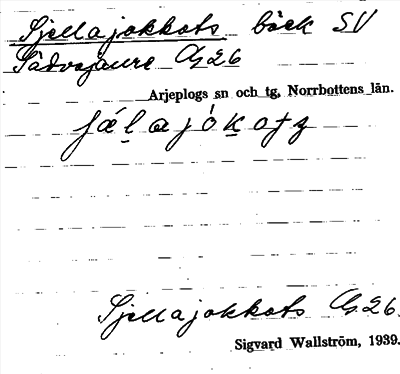 Sjellajokkats bäck SV
Sädvajaure Ag 26
Arjeplogs sn och tg, Norrbottens län.
Sjellajokkats Ag. 26.
Sigvard Wallström, 1939.